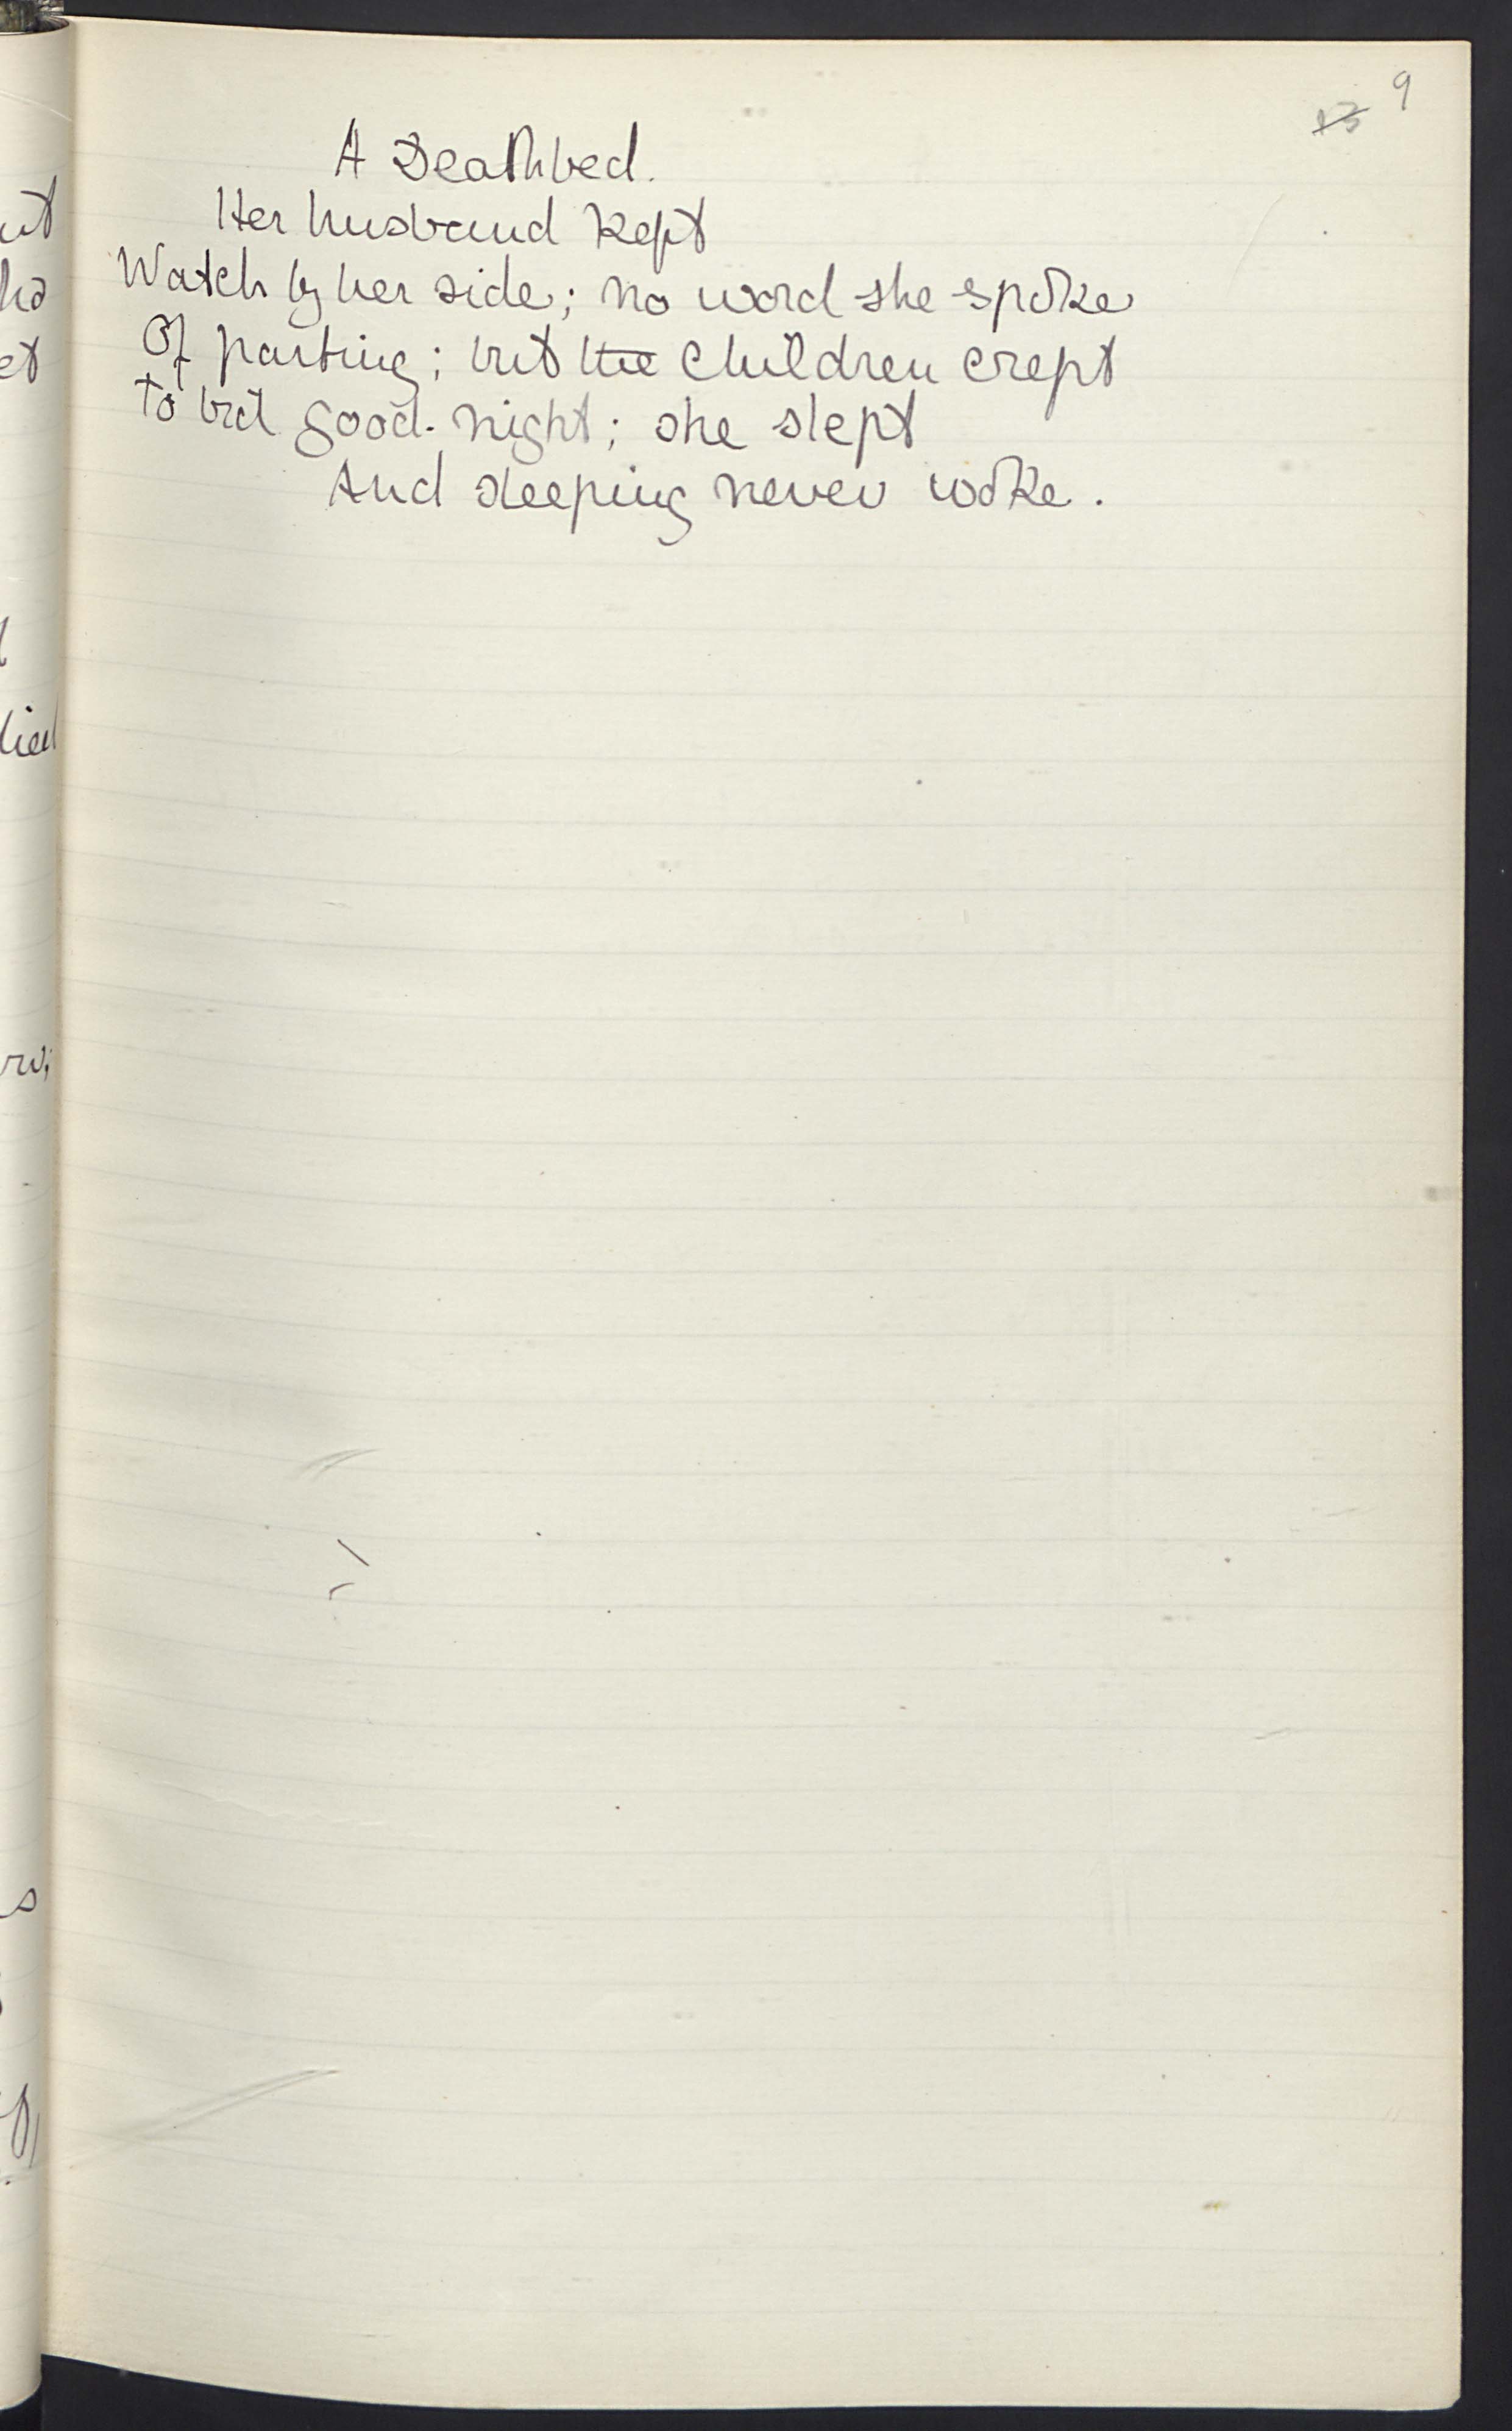 9
13
A Deathbed.
Her husband kept
Watch by her side; no word she spoke
Of parting; but the children crept
To bid good-night; she slept
And sleeping never woke.